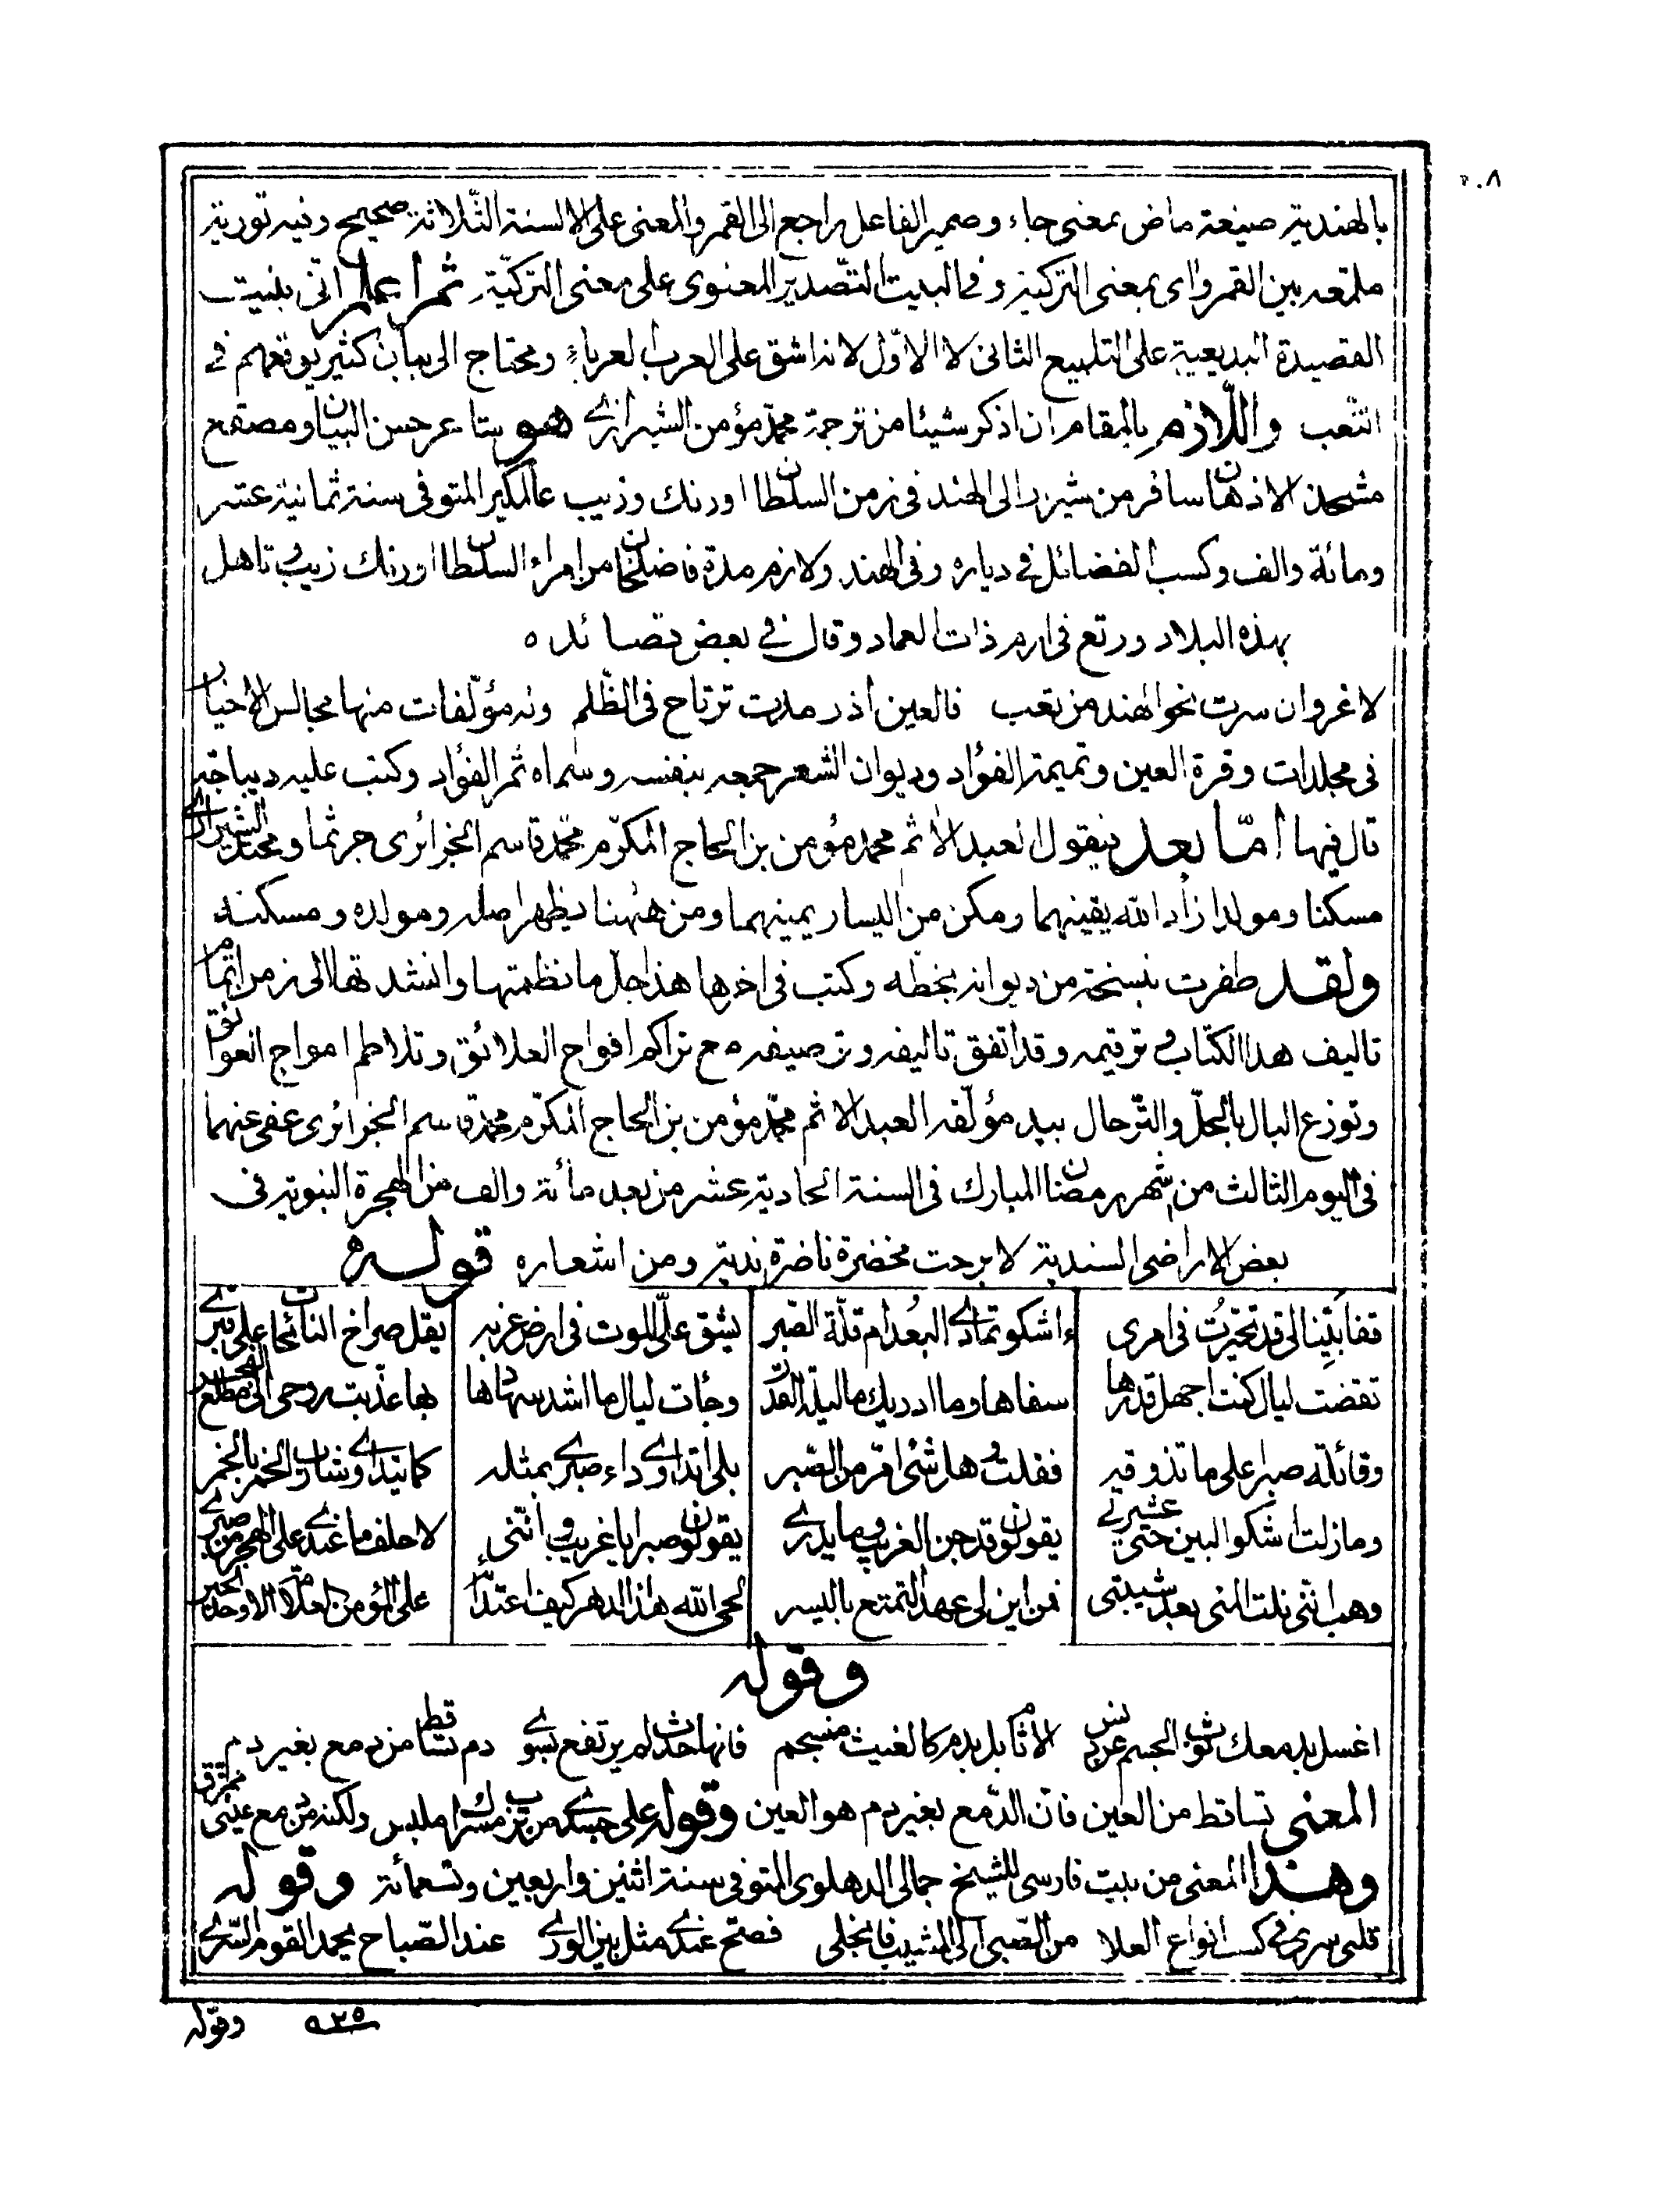 ٢٠٨
بالهندية صيغة ماض بمعنى جاء وضمير الفاعل راجع الى القمر والمعنى على الالسنة الثلاثة صحيح وفيه تورية
ملمعة بين القمر واى بمعنى التركية وفى البيت التصدير المعنوى على معنى التركيّة ثم اعلم انى بنيت
القصيدة البديعية على التلميع الثانى لا الاول لانه اشق على العرب العرباء ومحتاج الى بيان كثير يوقعهم فى
التعب واللازم بالمقام ان اذكر شيئا من ترجمة محمد مؤمن الشيرازى هو شاعر حسن البيان ومصقع
مشحذ الاذهان سافر من شيراز الى الهند فى زمن السلطان اورنك وزيب عالمكير المتوفى سنة ثمانية عشر
ومائة والف وكسب الفضائل فى دياره وفى الهند ولازم مدة فاضلخان من امراء السلطان اورنك زيب وتاهل
بهذه البلاد ورتع فى ارم ذات العماد وقال فى بعض قصائده
لا غرو ان سرت نحو الهند من تعب فالعين اذ رمدت ترتاح فى الظلم وله مؤلفات منها مجالس الاخيار
فى مجلدات وقرة العين وتميمة الفؤاد وديوان الشعر جمعه بنفسه وسماه ثمر الفؤاد وكتب عليه ديباجة
قال فيها امّا بعد فيقول العبد الاثم محمد مؤمن بن الحاج المكرّم محمد قاسم الجزائرى جرثما ومحتدا الشيرازى
مسكنا ومولدا زاد الله يقينهما ومكن من اليسار يمينهما ومن ههنا يظهر اصله ومولده ومسكنه
ولقد ظفرت بنسخة من ديوانه بخطه وكتب فى اخرها هذا جل ما نظمتها وانشدتها الى زمن اتمام
تاليف هذا الكتاب وترقيمه وقد اتفق تاليفه وترصيفه مع تراكم افواج العلائق وتلاطم امواج العوائق
وتوزع البال بالحلّ والترحال بيد مؤلفه العبد الاثم محمد مؤمن بن الحاج المكرّم محمد قاسم الجزائرى عفى عنهما
فى اليوم الثالث من شهر رمضان المبارك فى السنة الحادية عشر من بعد مائة والف من الهجرة النبوية فى
بعض الاراضى السندية لا برحت مخضرة ناضرة ندية ومن اشعاره قوله
قفا بيّنا لى قد تحيّرت فى امرى ءاشكو تمادى البعد ام قلّة الصّبر يشق علىّ الموت فى ارض غربة يقل صراخ النائحات على قبرى
تقضت ليال كنت اجهل قدرها سفاها وما ادريك ما ليلة القدر وجأت ليال ما اشد سهادها بها عذّبت روحى الى مطلع الفجر
وقائلة صبرا على ما تذوقه فقلت وهل شئ امرّ من الصّبر بلى اتداوى داء صبرى بمثله كما يتداوى شارب الخمر بالخمر
وما زلت اشكو البين حتى عشيرتى يقولون قد جن الغريب وما يدرى يقولون صبرا يا غريب واننى لا حلف ما عندى على الهجر من صبر
وهب اننى نلت المنى بعد شيبتى فمن اين لى عهد التمتع باليسر لحى الله هذا الدهر كيف اعتدأ على المؤمن العلامة الاوحد الحبر
وقوله
اغسل بدمعك ثوب الجسم عن دنس الاثام بل بدم كالغيث منسجم فانها حدث لم يرتفع بسوى دم تساقط من دمع بغير دم
المعنى تساقط من العين فان الدّمع بغير دم هو العين وقوله على جسدى من ملبس ولكنه من دمع عينى
وهذا المعنى من بيت فارسى للشيخ جمالى الدهلوى المتوفى سنة اثنين واربعين وتسعمائة وقوله
قلبى سرى فى كسب انواع العلا من الصبى الى المشيب فانجلى فصح عندى مثل بين الورى عند الصّباح يحمد القوم السّرى
وقوله